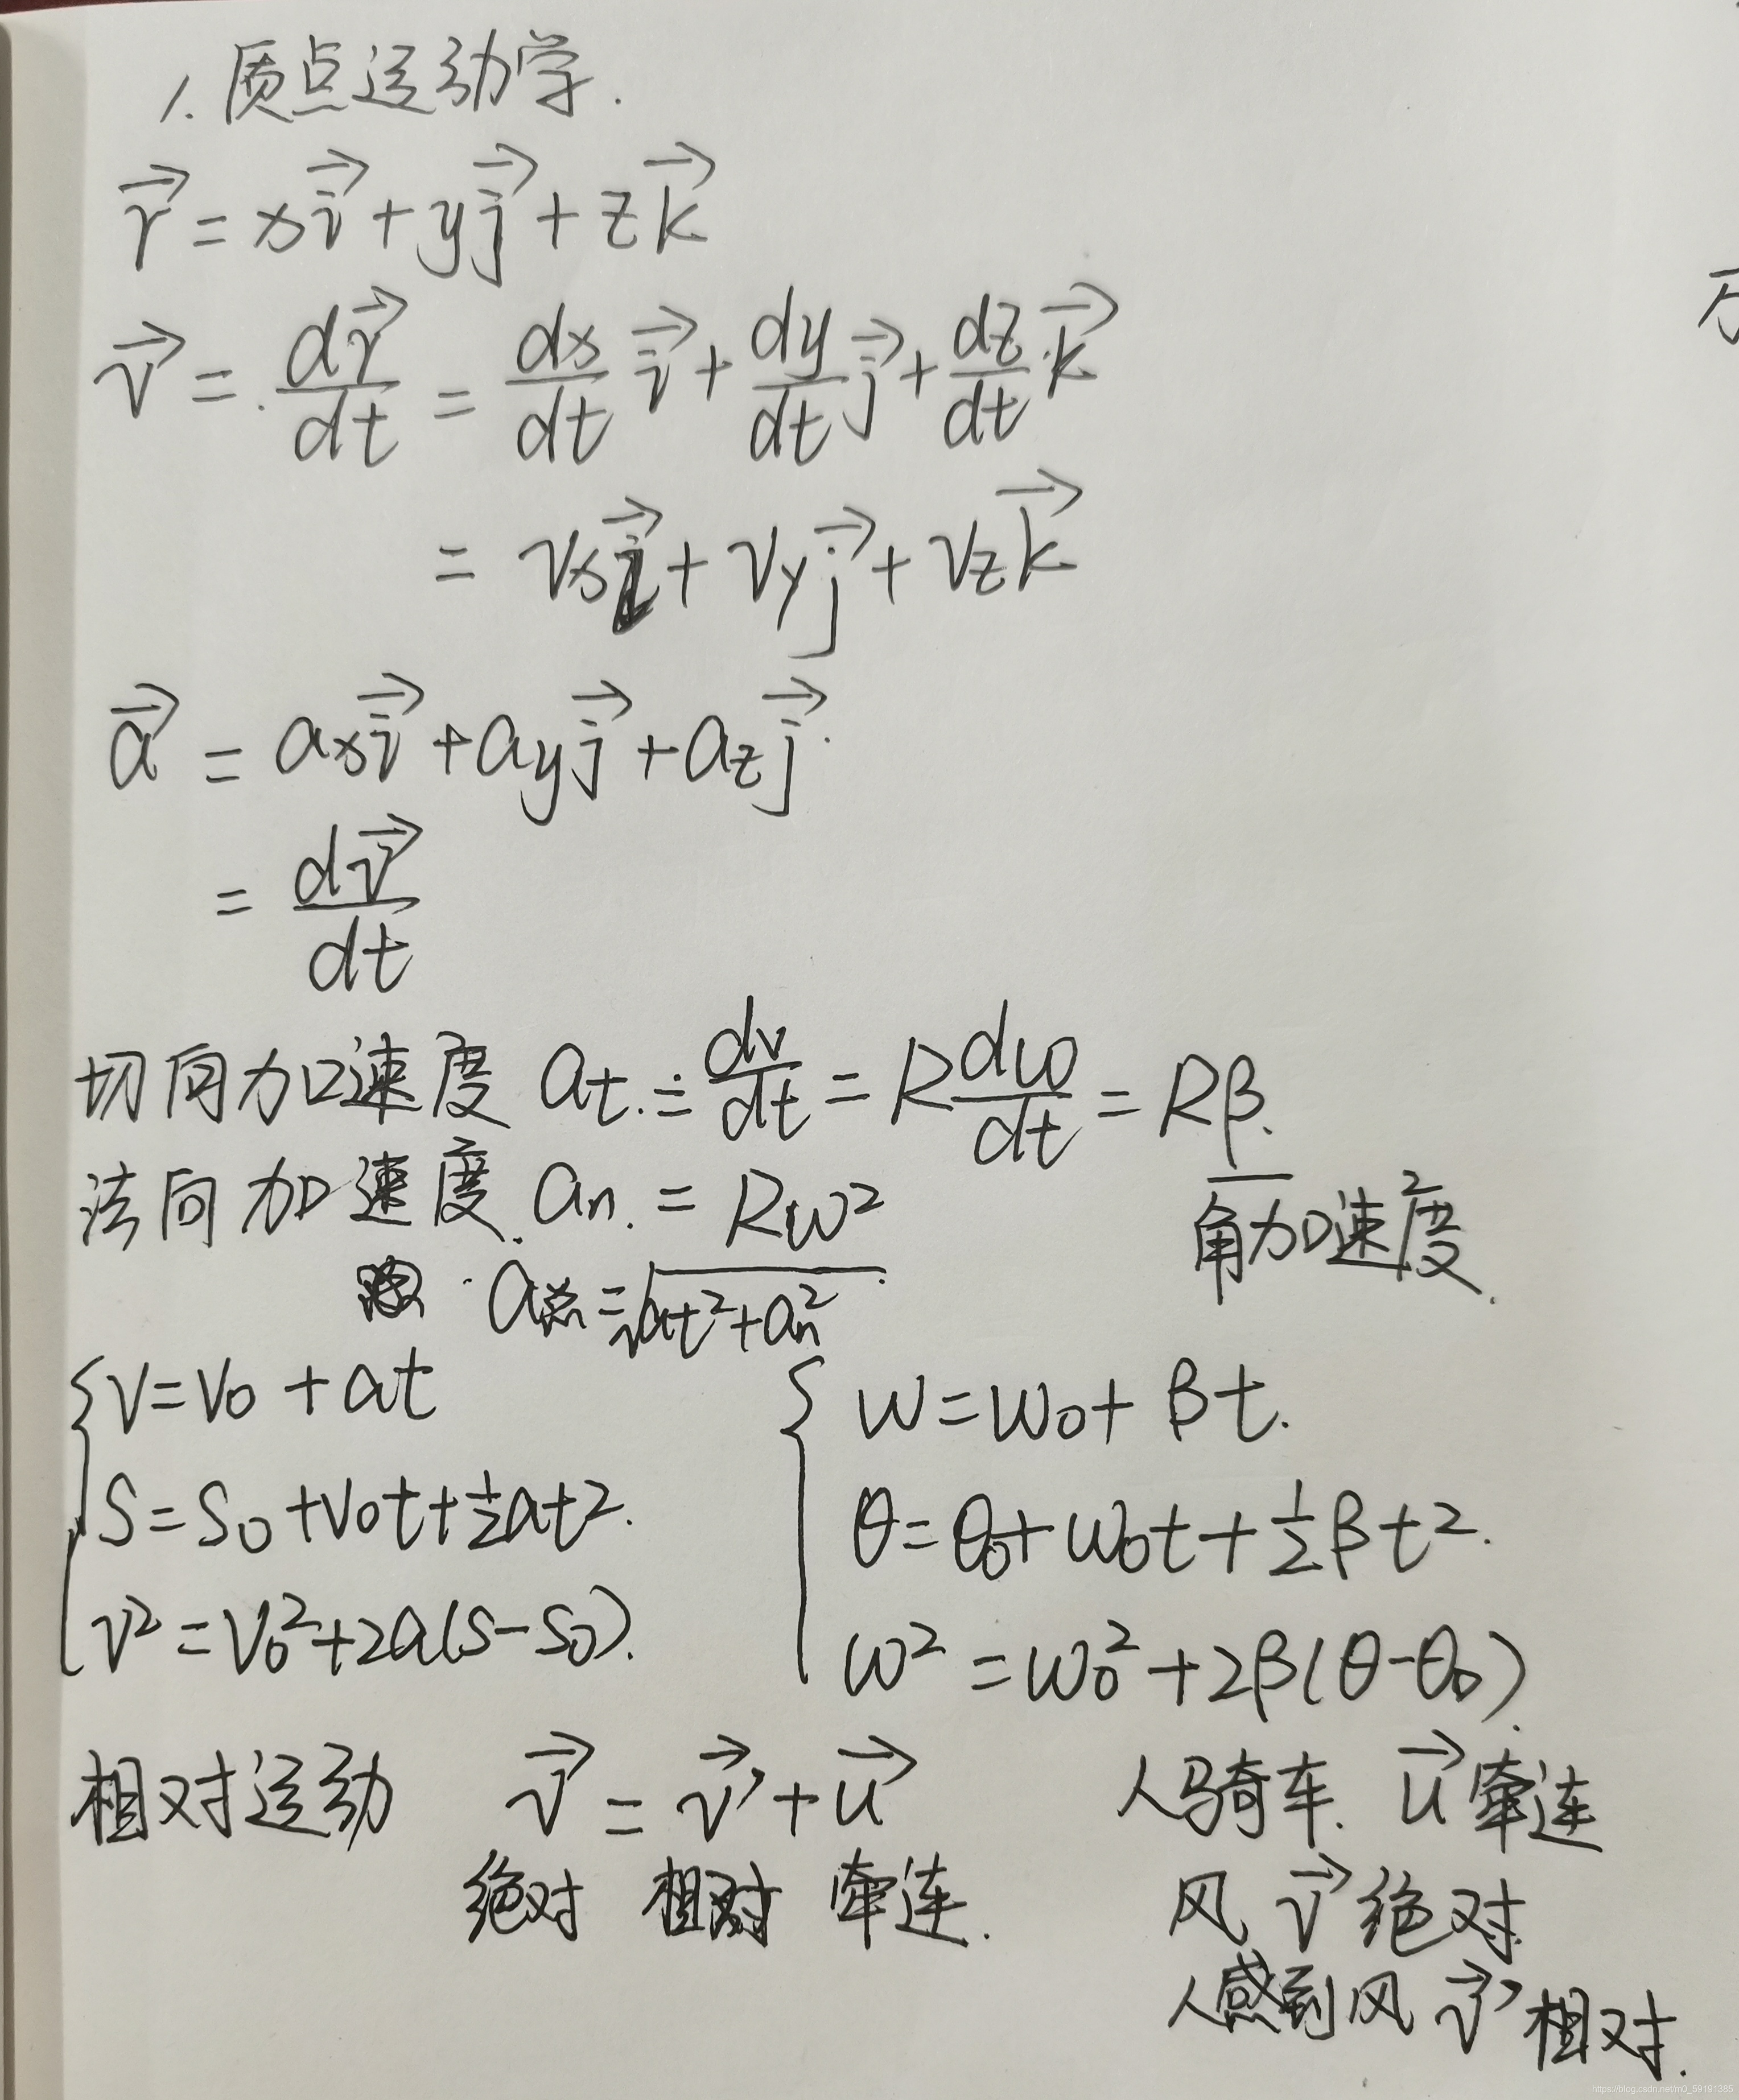 1. 质点运动学.
r⃗ = xi⃗ + yj⃗ + zk⃗
v⃗ = dr⃗/dt = dx/dt i⃗ + dy/dt j⃗ + dz/dt k⃗
= vxi⃗ + vyj⃗ + vzk⃗
a⃗ = axi⃗ + ayj⃗ + azj⃗
= dv⃗/dt
切向加速度 at = dv/dt = R dω/dt = Rβ.
法向加速度 an = Rω²
角加速度.
a总 = √(at² + an²)
v = v0 + at
S = S0 + v0t + ½at².
v² = v0² + 2a(S - S0).
ω = ω0 + βt.
θ = θ0 + ω0t + ½βt².
ω² = ω0² + 2β(θ - θ0).
相对运动 v⃗ = v⃗' + u⃗
绝对 相对 牵连.
人骑车. u⃗ 牵连
风 v⃗ 绝对.
人感到风 v⃗' 相对.
https://blog.csdn.net/m0_59191385